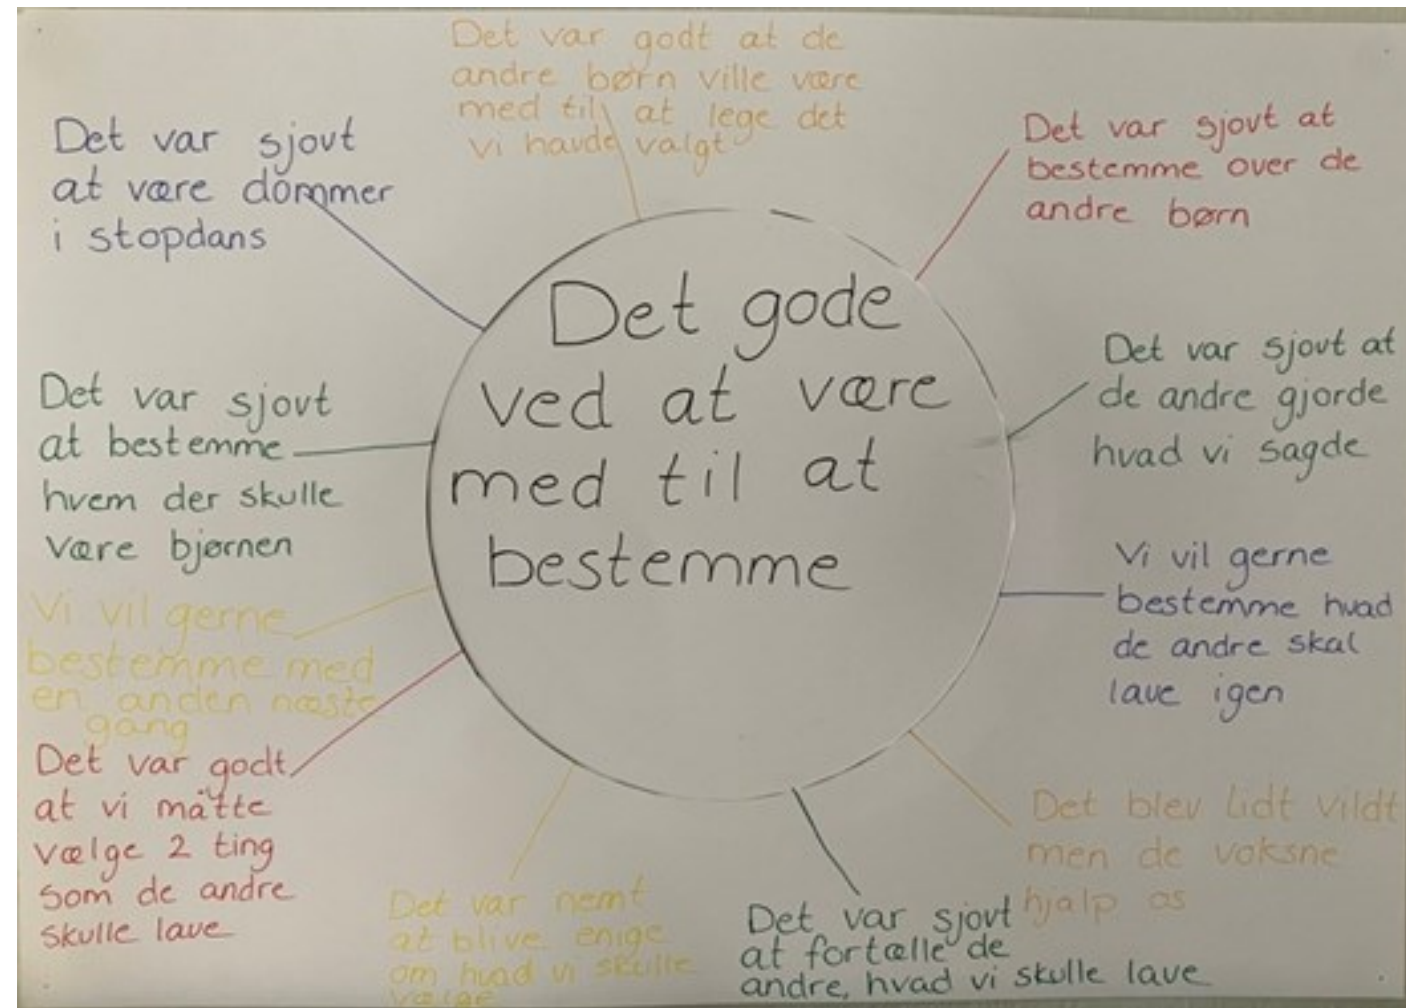 Det gode
ved at være
med til at
bestemme
Det var godt at de
andre børn ville være
med til at lege det
vi havde valgt
Det var sjovt at
bestemme over de
andre børn
Det var sjovt at
de andre gjorde
hvad vi sagde
Vi vil gerne
bestemme hvad
de andre skal
lave igen
Det blev lidt vildt
men de voksne
hjalp os
Det var sjovt
at fortælle de
andre, hvad vi skulle lave
Det var nemt
at blive enige
om hvad vi skulle
vælge
Det var godt
at vi måtte
vælge 2 ting
som de andre
skulle lave
Vi vil gerne
bestemme med
en anden næste
gang
Det var sjovt
at bestemme
hvem der skulle
være bjørnen
Det var sjovt
at være dommer
i stopdans